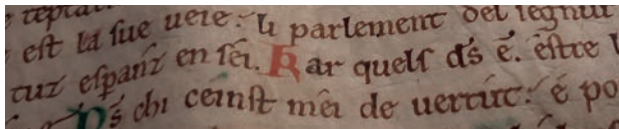 est la sue ueie: li parlement del segnur
tuz espanz en sei. Kar quels ds é. estre l
Ds chi ceinst mei de uertut: e po